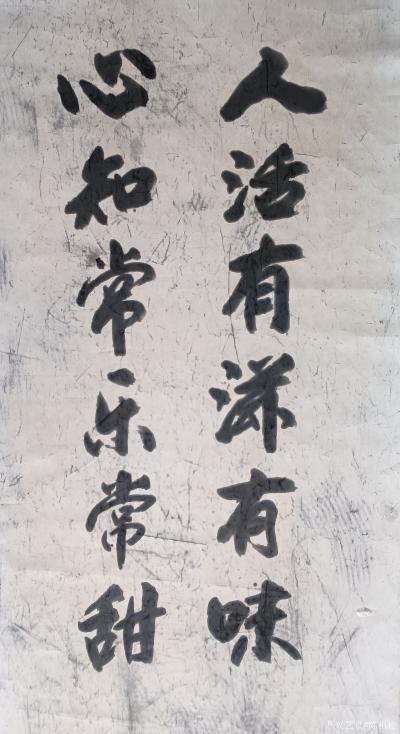 人活有滋有味
心知常乐常甜